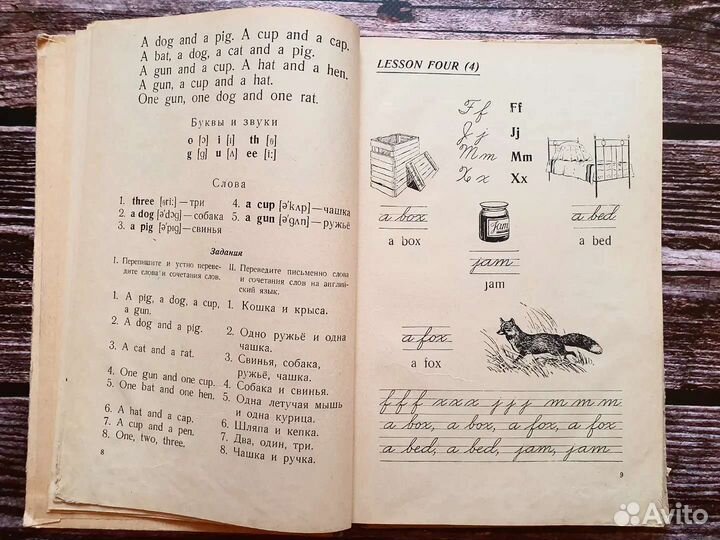 A dog and a pig. A cup and a cap.
A bat, a dog, a cat and a pig.
A gun and a cup. A hat and a hen.
A gun, a cup and a hat.
One gun, one dog and one rat.
Буквы и звуки
o [ɔ] i [ɪ] th [θ]
g [g] u [ʌ] ee [i:]
Слова
1. three [θri:]—три
2. a dog [ə'dɔg]—собака
3. a pig [ə'pɪg]—свинья
4. a cup [ə'kʌp]—чашка
5. a gun [ə'gʌn]—ружьё
Задания
I. Перепишите и устно переве-
дите слова и сочетания слов.
1. A pig, a dog, a cup,
a gun.
2. A dog and a pig.
3. A cat and a rat.
4. One gun and one cup.
5. One bat and one hen.
6. A hat and a cap.
7. A cup and a pen.
8. One, two, three.
II. Переведите письменно слова
и сочетания слов на англий-
ский язык.
1. Кошка и крыса.
2. Одно ружьё и одна
чашка.
3. Свинья, собака,
ружьё, чашка.
4. Собака и свинья.
5. Одна летучая мышь
и одна курица.
6. Шляпа и кепка.
7. Два, один, три.
8. Чашка и ручка.
8
LESSON FOUR (4)
F f Ff
J j Jj
M m Mm
X x Xx
a box
a box
Jam
jam
jam
a bed
a bed
a fox
a fox
f f f x x x j j j m m m
a box, a box, a fox, a fox
a bed, a bed, jam, jam
9
Avito